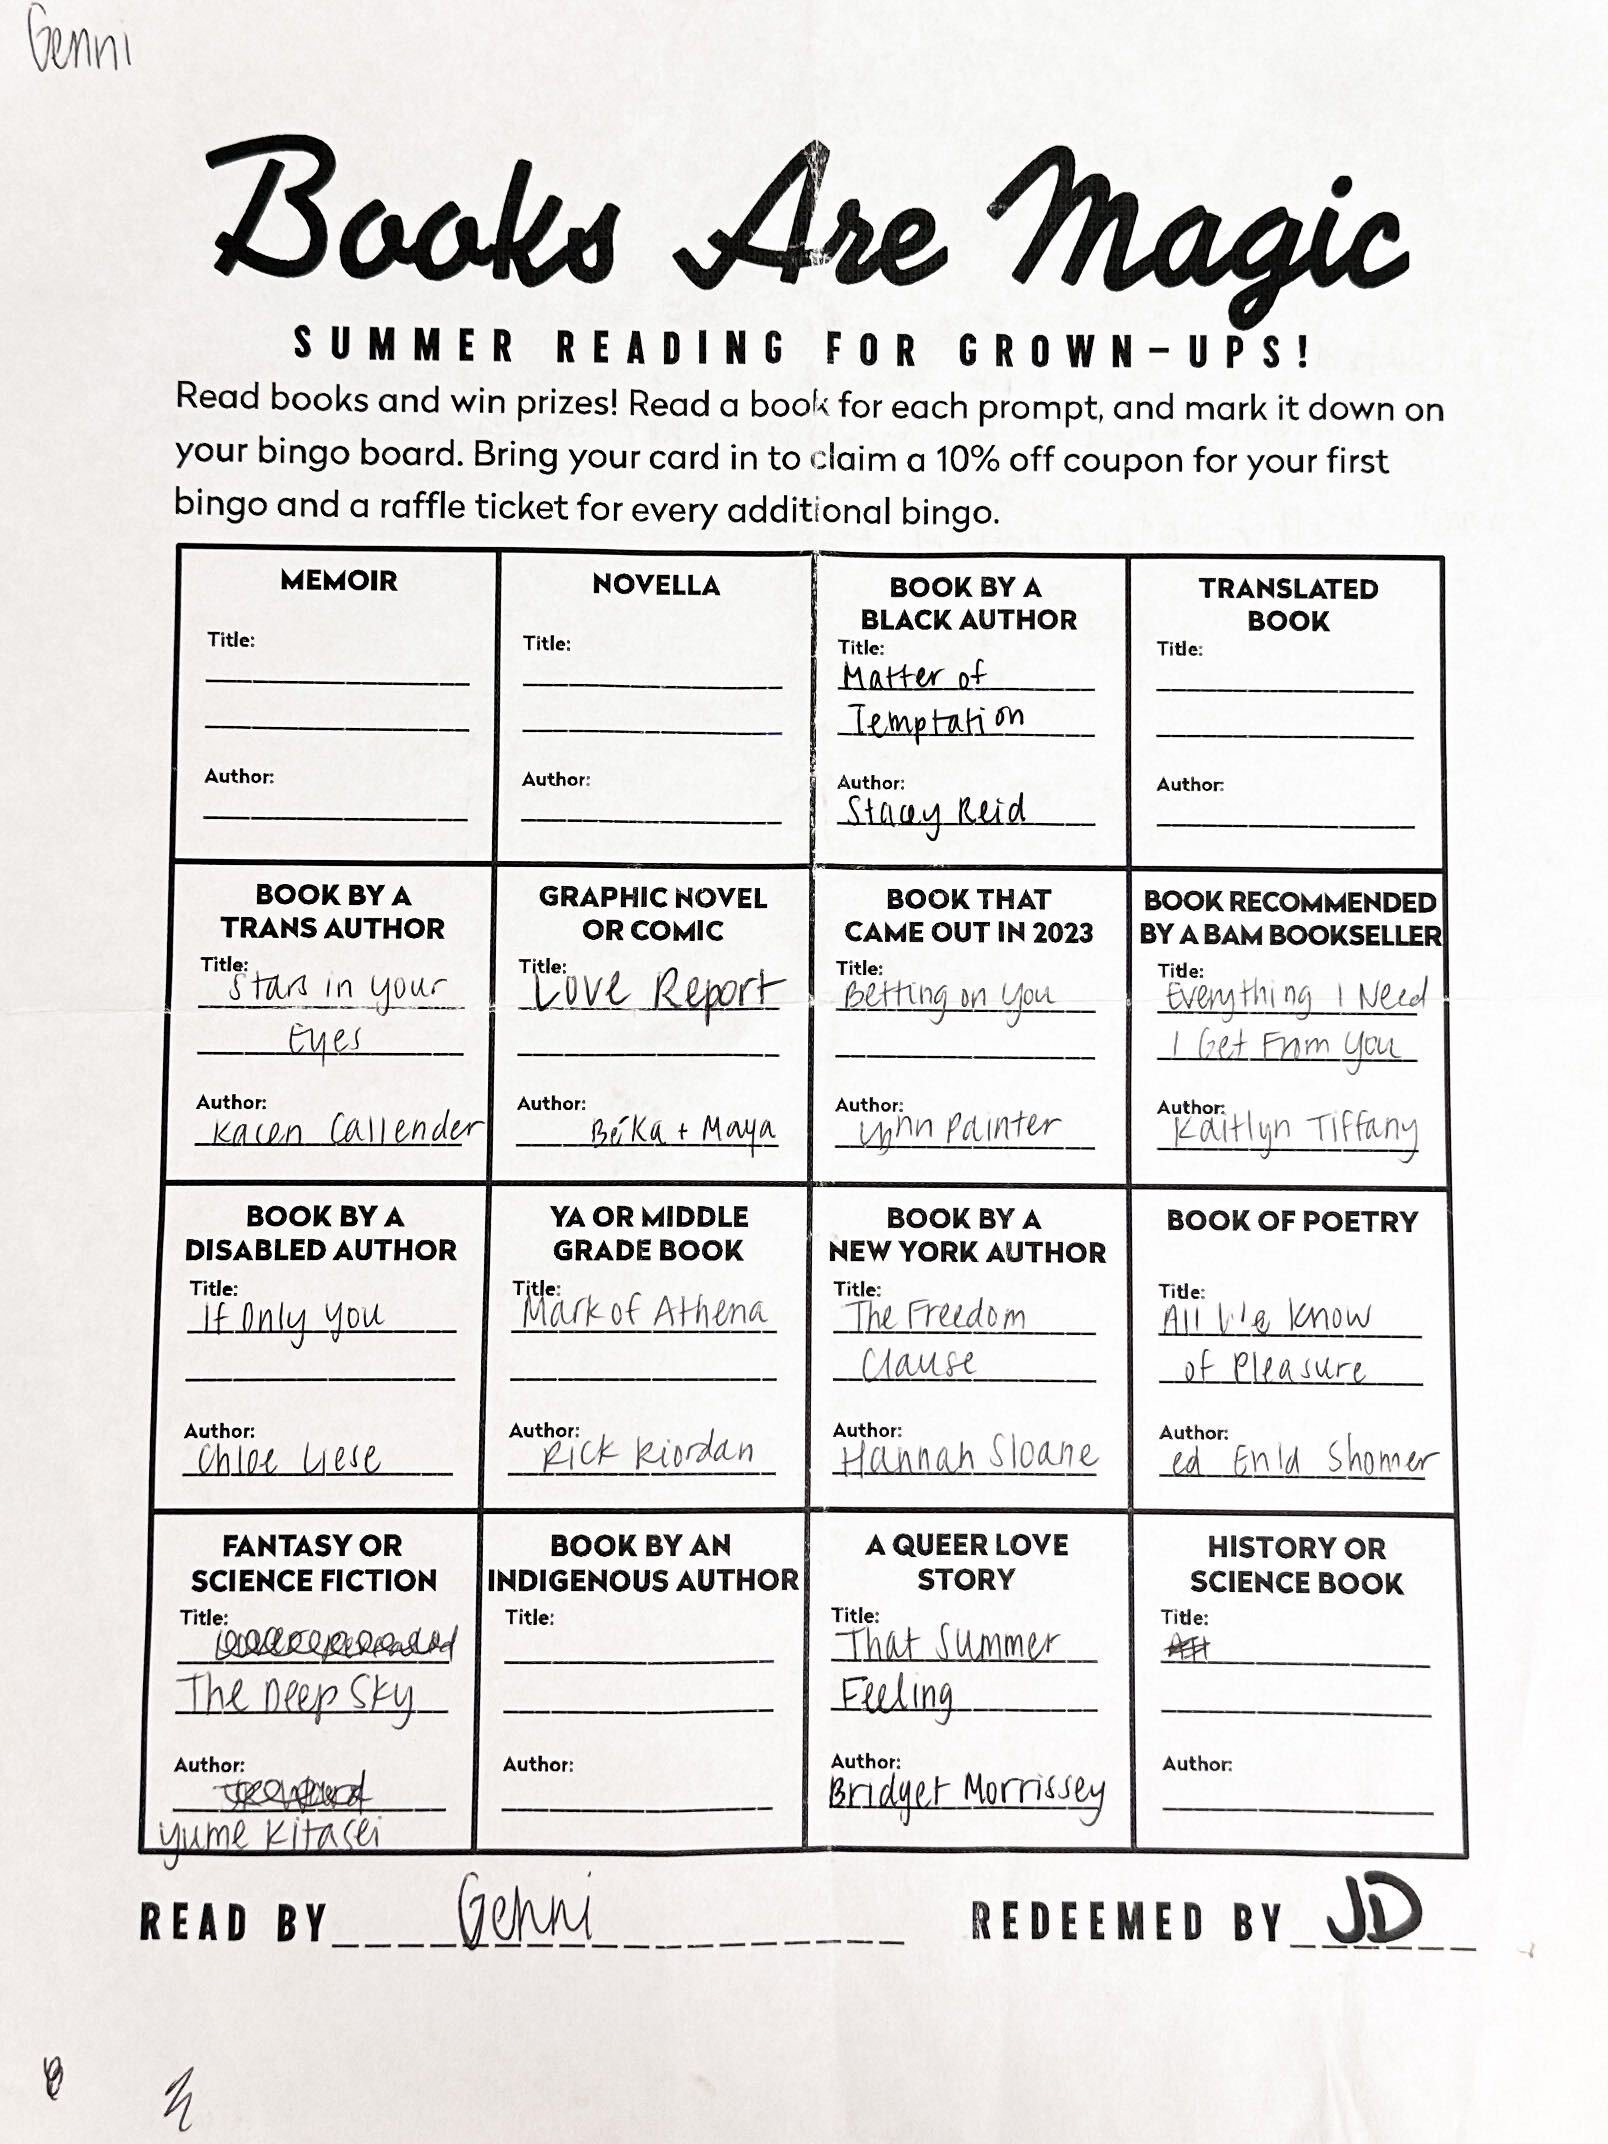 Genni
Books Are Magic
SUMMER READING FOR GROWN-UPS!
Read books and win prizes! Read a book for each prompt, and mark it down on
your bingo board. Bring your card in to claim a 10% off coupon for your first
bingo and a raffle ticket for every additional bingo.
MEMOIR
Title:
Author:
NOVELLA
Title:
Author:
BOOK BY A
BLACK AUTHOR
Title:
Matter of
Temptation
Author:
Stacey Reid
TRANSLATED
BOOK
Title:
Author:
BOOK BY A
TRANS AUTHOR
Title:
Stars in your
Eyes
Author:
Kacen Callender
GRAPHIC NOVEL
OR COMIC
Title:
Love Report
Author:
BéKa + Maya
BOOK THAT
CAME OUT IN 2023
Title:
Betting on You
Author:
Lynn Painter
BOOK RECOMMENDED
BY A BAM BOOKSELLER
Title:
Everything I Need
I Get From You
Author:
Kaitlyn Tiffany
BOOK BY A
DISABLED AUTHOR
Title:
If Only You
Author:
Chloe Liese
YA OR MIDDLE
GRADE BOOK
Title:
Mark of Athena
Author:
Rick Riordan
BOOK BY A
NEW YORK AUTHOR
Title:
The Freedom
Clause
Author:
Hannah Sloane
BOOK OF POETRY
Title:
All We Know
of Pleasure
Author:
ed Enid Shomer
FANTASY OR
SCIENCE FICTION
Title:
The Deep Sky
Author:
Yume Kitasei
BOOK BY AN
INDIGENOUS AUTHOR
Title:
Author:
A QUEER LOVE
STORY
Title:
That Summer
Feeling
Author:
Bridget Morrissey
HISTORY OR
SCIENCE BOOK
Title:
Author:
READ BY Genni
REDEEMED BY JD